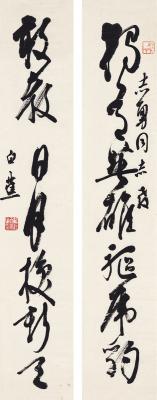 独有英雄驱虎豹
志勇同志教
敢教日月换新天
白蕉